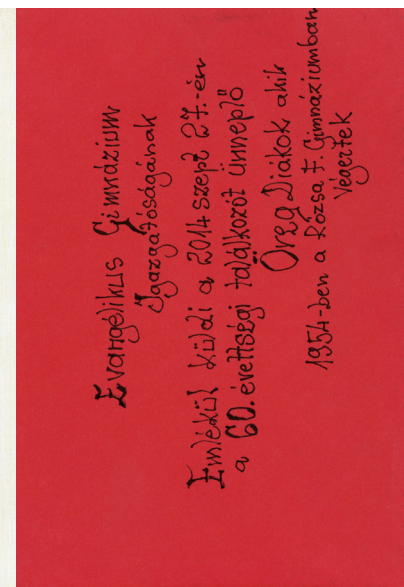 Evangélikus Gimnázium
Igazgatóságának
Emlékül küldi a 2014 szept 27.-én
a 60. évettségi találkozót ünneplő
Öreg Diákok akik
1954-ben a Rózsa F. Gimnáziumban
végeztek